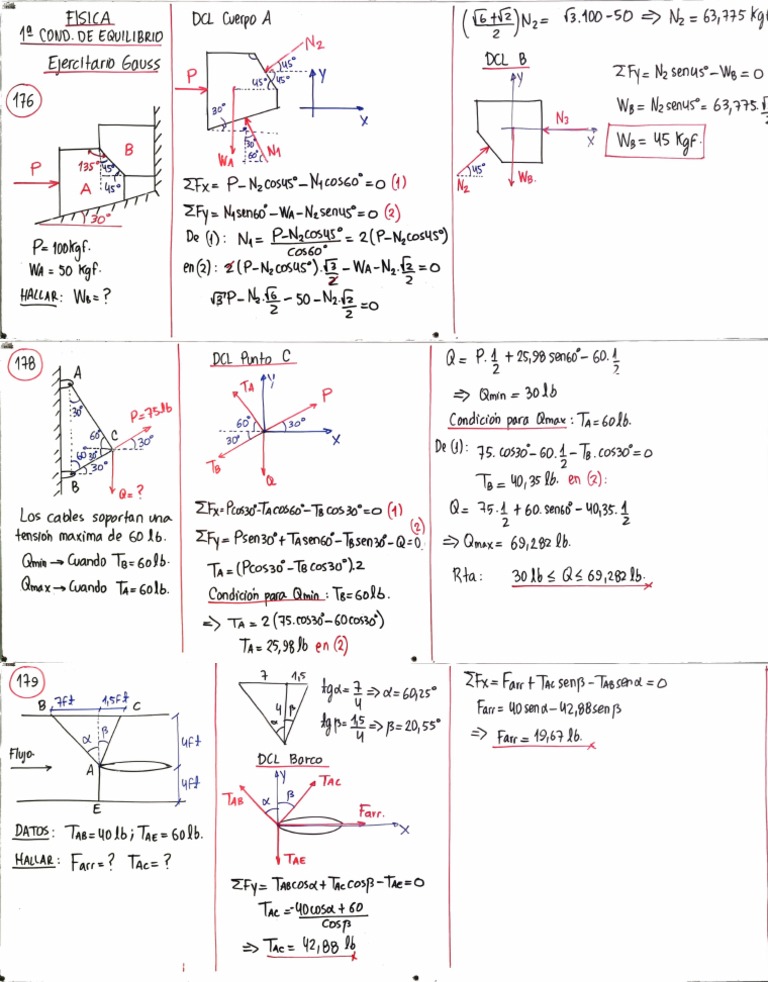 FISICA
1ª COND. DE EQUILIBRIO
Ejercitario Gauss
176
135°
B
P
45°
A
45°
30°
P = 100 kgf.
WA = 50 Kgf.
HALLAR: WB = ?
DCL Cuerpo A
N2
45°
P
45°
45°
y
x
30°
30°
60°
WA
N1
ΣFx = P - N2cos45° - N1cos60° = 0 (1)
ΣFy = N1sen60° - WA - N2sen45° = 0 (2)
De (1): N1 = (P - N2cos45°)/cos60° = 2(P - N2cos45°)
en (2): 2(P - N2cos45°).√3/2 - WA - N2.√2/2 = 0
√3P - N2.√6/2 - 50 - N2.√2/2 = 0
((√6+√2)/2)N2 = √3.100 - 50 => N2 = 63,775 Kgf
DCL B
y
N3
x
45°
N2
WB.
ΣFy = N2sen45° - WB = 0
WB = N2sen45° = 63,775.√
WB = 45 Kgf.
178
A
30°
P=75lb
60°
C
30°
60°
30°
30°
B
Q = ?
Los cables soportan una
tensión maxima de 60 lb.
Qmin → Cuando TB = 60 lb.
Qmax → Cuando TA = 60 lb.
DCL Punto C
TA
y
P
60°
30°
30°
x
TB
Q
ΣFx = Pcos30° - TAcos60° - TBcos30° = 0 (1)
(2)
ΣFy = Psen30° + TAsen60° - TBsen30° - Q = 0
TA = (Pcos30° - TBcos30°).2
Condición para Qmin: TB = 60 lb.
=> TA = 2(75.cos30° - 60cos30°)
TA = 25,98 lb en (2)
Q = P.1/2 + 25,98 sen60° - 60.1/2
=> Qmin = 30 lb
Condición para Qmax: TA = 60 lb.
De (1): 75.cos30° - 60.1/2 - TB.cos30° = 0
TB = 40,35 lb. en (2):
Q = 75.1/2 + 60.sen60° - 40,35.1/2
=> Qmax = 69,282 lb.
Rta: 30 lb ≤ Q ≤ 69,282 lb.
179
B
7ft
1,5ft
C
α
β
4ft
Flujo
A
4ft
E
DATOS: TAB = 40 lb; TAE = 60 lb.
HALLAR: Farr = ? TAC = ?
7
1,5
4
β
α
tgα = 7/4 => α = 60,25°
tgβ = 1,5/4 => β = 20,55°
DCL Barco
y
TAB
α
β
TAC
Farr.
x
TAE
ΣFy = TABcosα + TACcosβ - TAE = 0
TAC = (-40cosα + 60)/cosβ
=> TAC = 42,88 lb
ΣFx = Farr + TACsenβ - TABsenα = 0
Farr = 40senα - 42,88senβ
=> Farr = 19,67 lb.